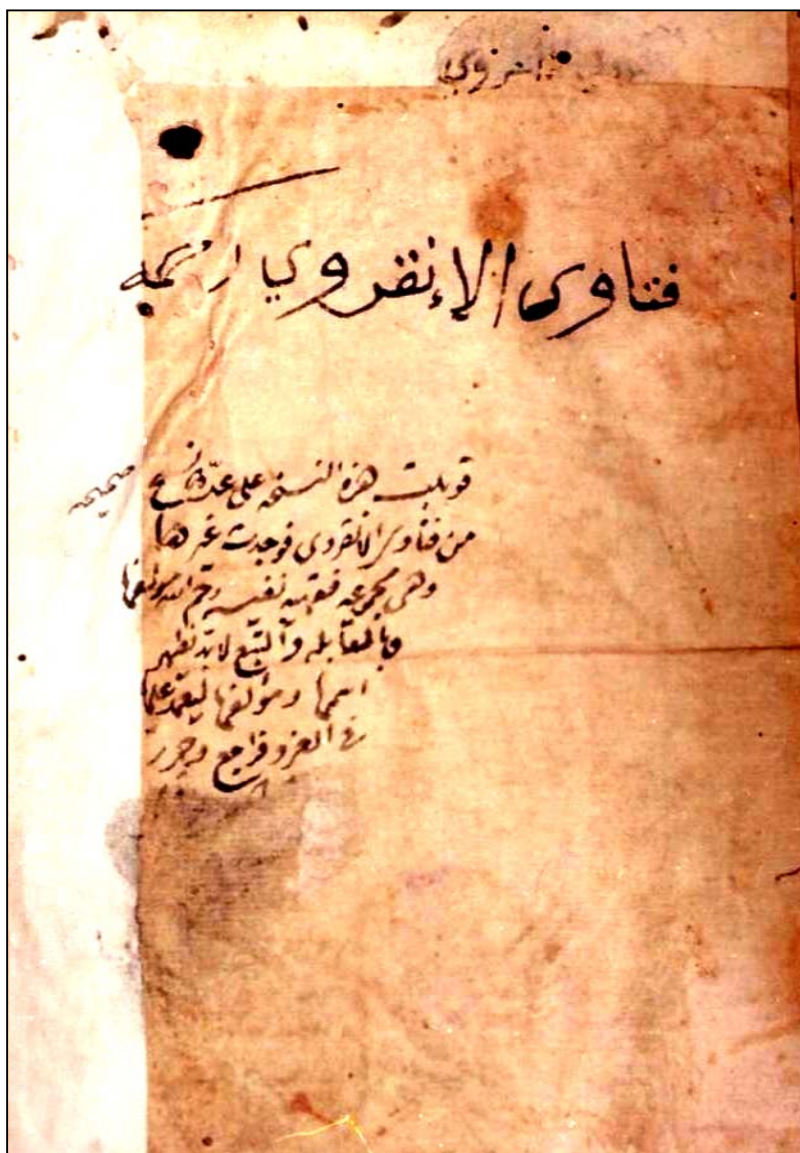 الأنقروي
فتاوى الإنقروي
قوبلت هذه النسخة على عدة نسخ صحيحة
من فتاوى الانقروي فوجدت غيرها
وهي مجموعه فقهيه نفيسه رحم الله مؤلفها
وبالمقابله والتتبع لابد يظهر
اسمها ومؤلفها ليعتمد عليها
في العزو فراجع وحرر